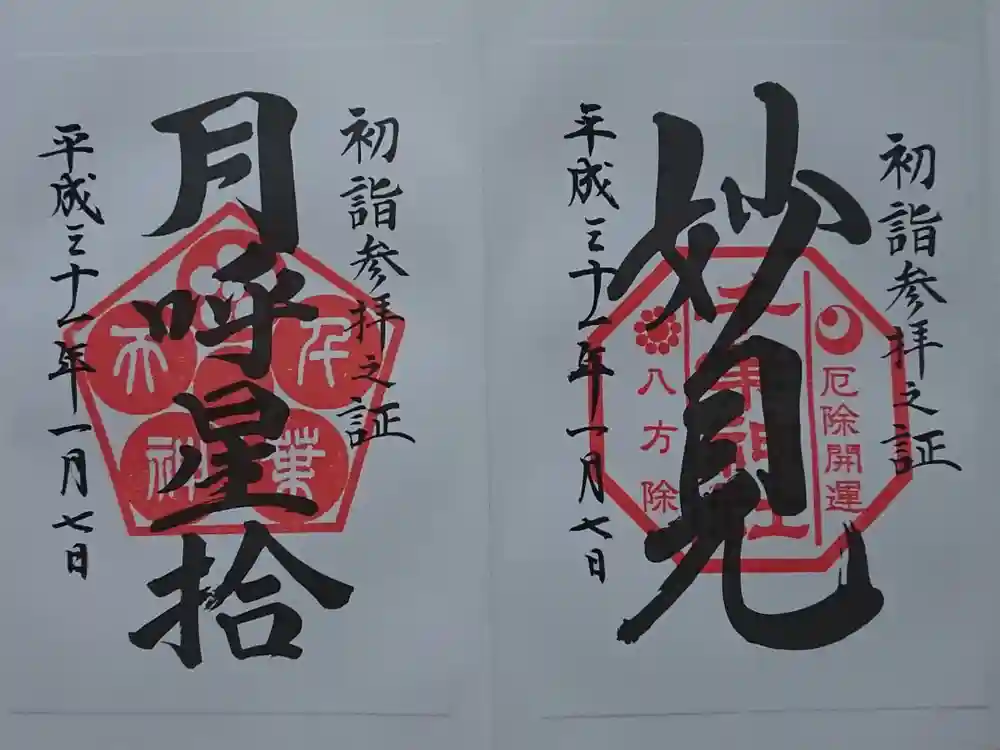 初詣参拝之証
妙見
厄除開運
千葉神社
八方除
平成三十一年一月七日
初詣参拝之証
月呼星拾
千葉
天
神
平成三十一年一月七日